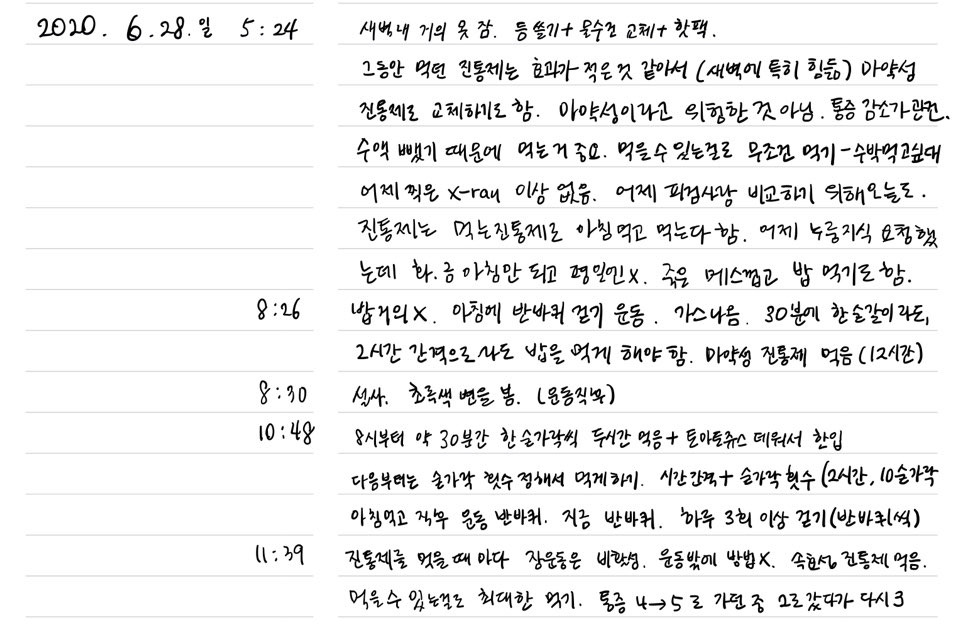 2020. 6. 28. 일 5:24 새벽내 거의 못 잠. 등 쓸기 + 물수건 교체 + 핫팩.
그동안 먹던 진통제는 효과가 적은 것 같아서 (새벽에 특히 힘듦) 마약성
진통제로 교체하기로 함. 마약성이라고 위험한 것 아님. 통증 감소가 관건.
수액 뺐기 때문에 먹는거 중요. 먹을수 있는걸로 무조건 먹기 - 수박먹고싶대
어제 찍은 x-ray 이상 없음. 어제 피검사랑 비교하기 위해 오늘도.
진통제는 먹는진통제로 아침먹고 먹는다 함. 어제 누룽지식 요청했
는데 화.금 아침만 되고 평일인 X. 죽은 메스껍고 밥 먹기로 함.
8:26 밥 거의 X. 아침에 반바퀴 걷기 운동. 가스나옴. 30분에 한숟갈이라도,
2시간 간격으로라도 밥을 먹게 해야 함. 마약성 진통제 먹음 (12시간)
8:30 설사. 초록색 변을 봄. (운동직후)
10:48 8시부터 약 30분간 한숟가락씩 두시간 먹음 + 토마토쥬스 데워서 한입
다음부터는 숟가락 횟수 정해서 먹게하기. 시간간격 + 숟가락 횟수 (2시간, 10숟가락
아침먹고 직후 운동 반바퀴. 지금 반바퀴. 하루 3회 이상 걷기 (반바퀴씩)
11:39 진통제를 먹을 때 마다 장운동은 비활성. 운동밖에 방법 X. 속효성 진통제 먹음.
먹을수 있는걸로 최대한 먹기. 통증 4→5로 가던 중 2로 갔다가 다시 3